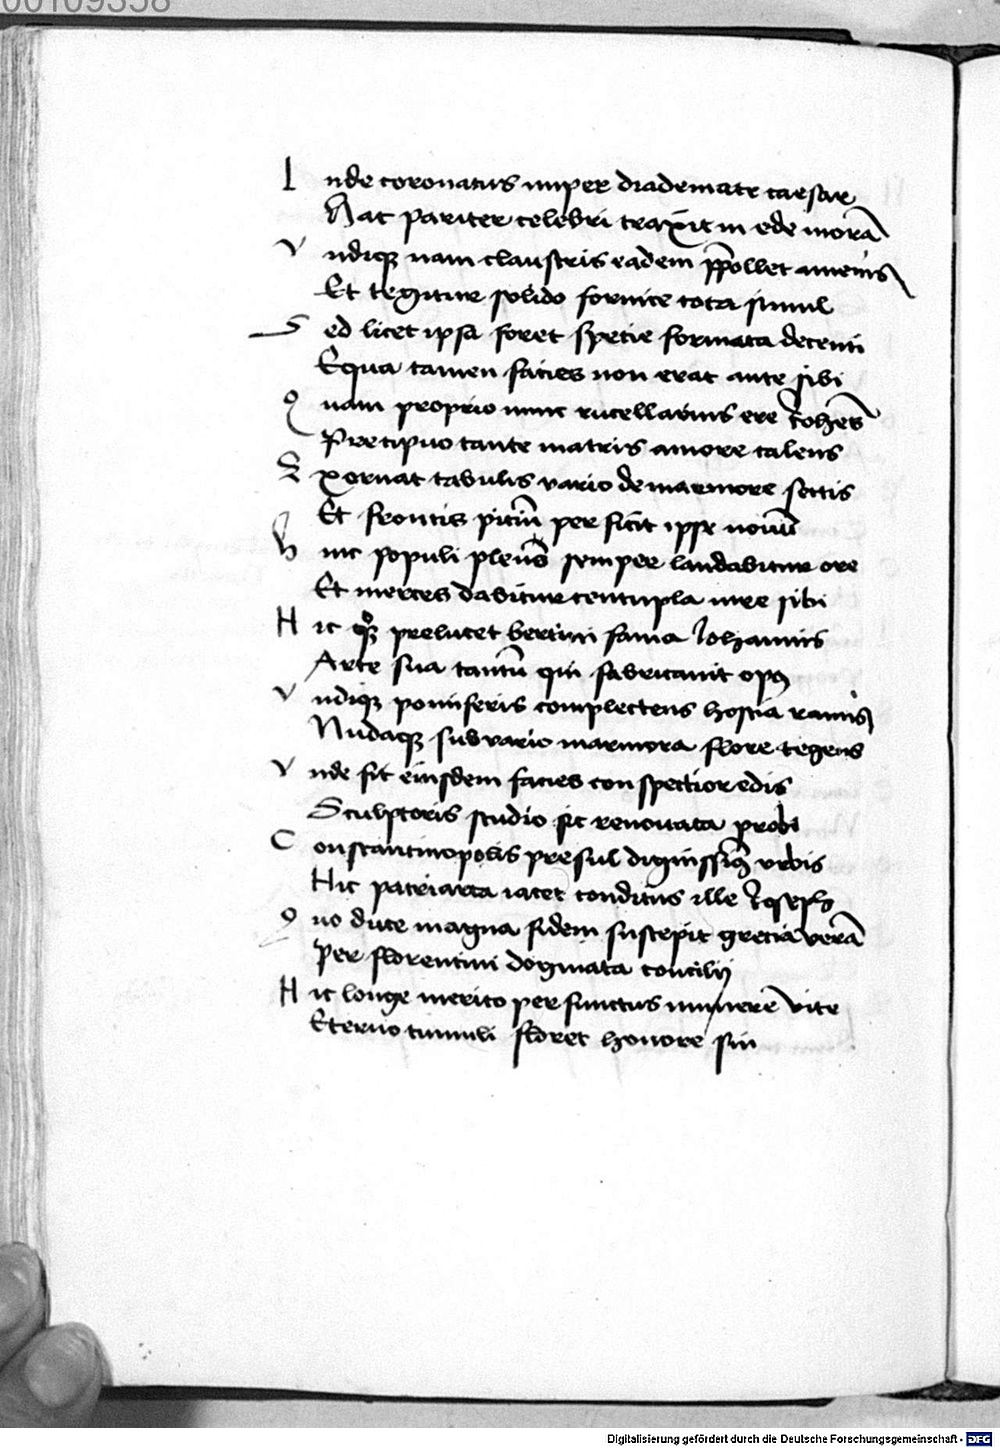 00109358
Inde coronatus nuper diademate caesar
Hac pariter celebri traxit in ede morā
Vndiqꝫ nam claustris eadem p̄pollet amenis
Et tegitur solido fornice tota simul
Sed licet ipsa foret spetie formata decenti
Equa tamen facies non erat ante sibi
Quam proprio nunc rucellarius ere Iohēs
Pretipuo tante matris amore calens
Exornat tabulis vario de marmore settis
Et frontis per ficit ipse nouū
Hinc populi plenō semper laudabitur ore
Et merces dabitur centupla iure sibi
Hic qͦqꝫ prelucet bertini fama Iohannis
Arte sua tantū qui fabricauit opꝰ
Vndiqꝫ pomiferis complectens hostia ramis
Nudaqꝫ sub vario marmora flore tegens
Vnde fit eiusdem facies conspectior edis
Sculptoris studio sic renouata probi
Constantinopolis presul digniss urbis
Hic patriarca iacet conditus ille Ioseph
Quo duce magna fidem suscepit grecia verā
Per florentini dogmata concilij
Hic longe merito perfunctus munere vite
Eterno tumuli floret honore sui
Digitalisierung gefördert durch die Deutsche Forschungsgemeinschaft - DFG